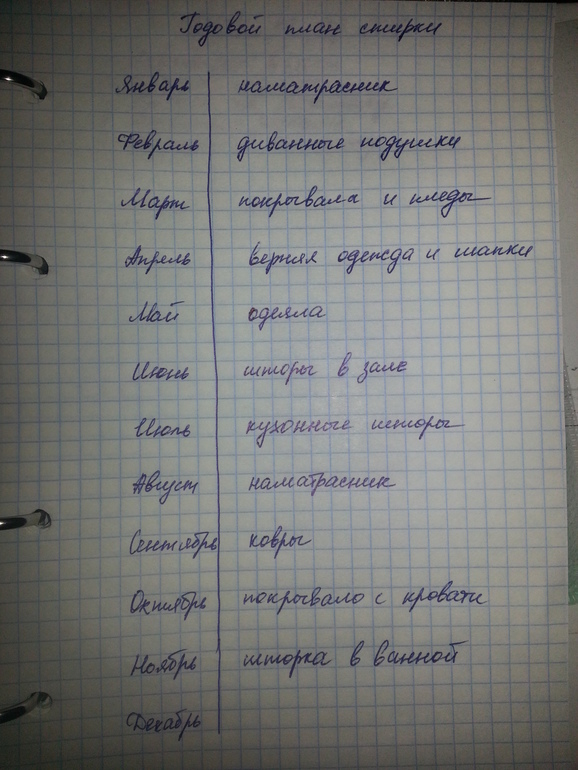 Годовой план стирки
Январь наматрасник
Февраль диванные подушки
Март покрывала и пледы
Апрель верхняя одежда и шапки
Май одеяла
Июнь шторы в зале
Июль кухонные шторы
Август наматрасник
Сентябрь ковры
Октябрь покрывало с кровати
Ноябрь шторка в ванной
Декабрь